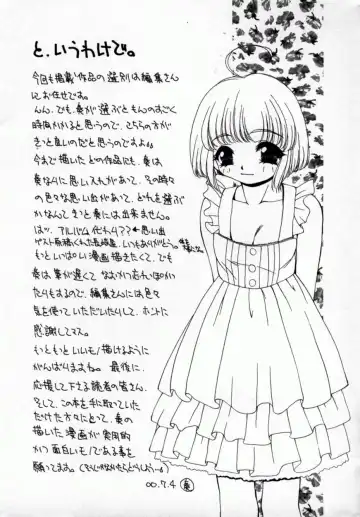 と、いうわけで。
今回も掲載作品の選別は編集さん
にお任せです。
んん、でも、奏が選ぶともんのすごく
時間かかると思うので、こちらの方が
きっと良いのだと思うのですよ。
今まで描いたどの作品にも、奏は
奏なりに思い入れがあって、その時々
の色々な思い出があって、どれを選ぶ
かなんてきっと奏には出来ません。
は…アルバム化わり？？←思い出
ゲスト原稿くれた
いつもありがとう。
もっといっぱい漫画描きたくて、でも
奏は筆が遅くてなおかつ
たりもするので、編集さんには色々
気を使っていただいたりして、ホントに
感謝してマス。
もっともっといいモノ描けるように
がんばりますよね。最後に、
応援して下さる読者の皆さん、
そして、この本を手に取っていた
だけた方々にとって、奏の
描いた漫画が実用的
かつ面白いモノである事を
願ってます。
00.7.4 奏